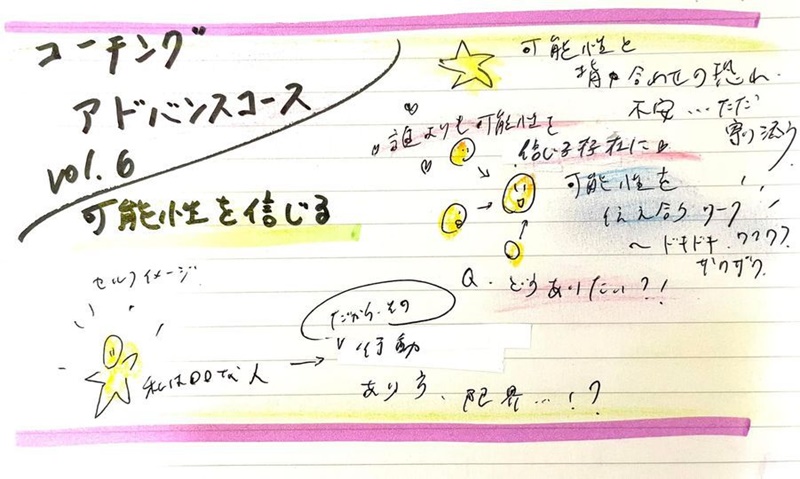 コーチング
アドバンスコース
vol.6
可能性を信じる
可能性と
背中合わせの恐れ.
不安…ただ
寄り添う
誰よりも可能性を
信じる存在に
可能性を
伝え合うワーク
～ドキドキ.ワクワク.
ザワザワ.
Q.どうありたい?!
セルフイメージ
私は〇〇な人
だから.その
行動
あり方、限界…!?